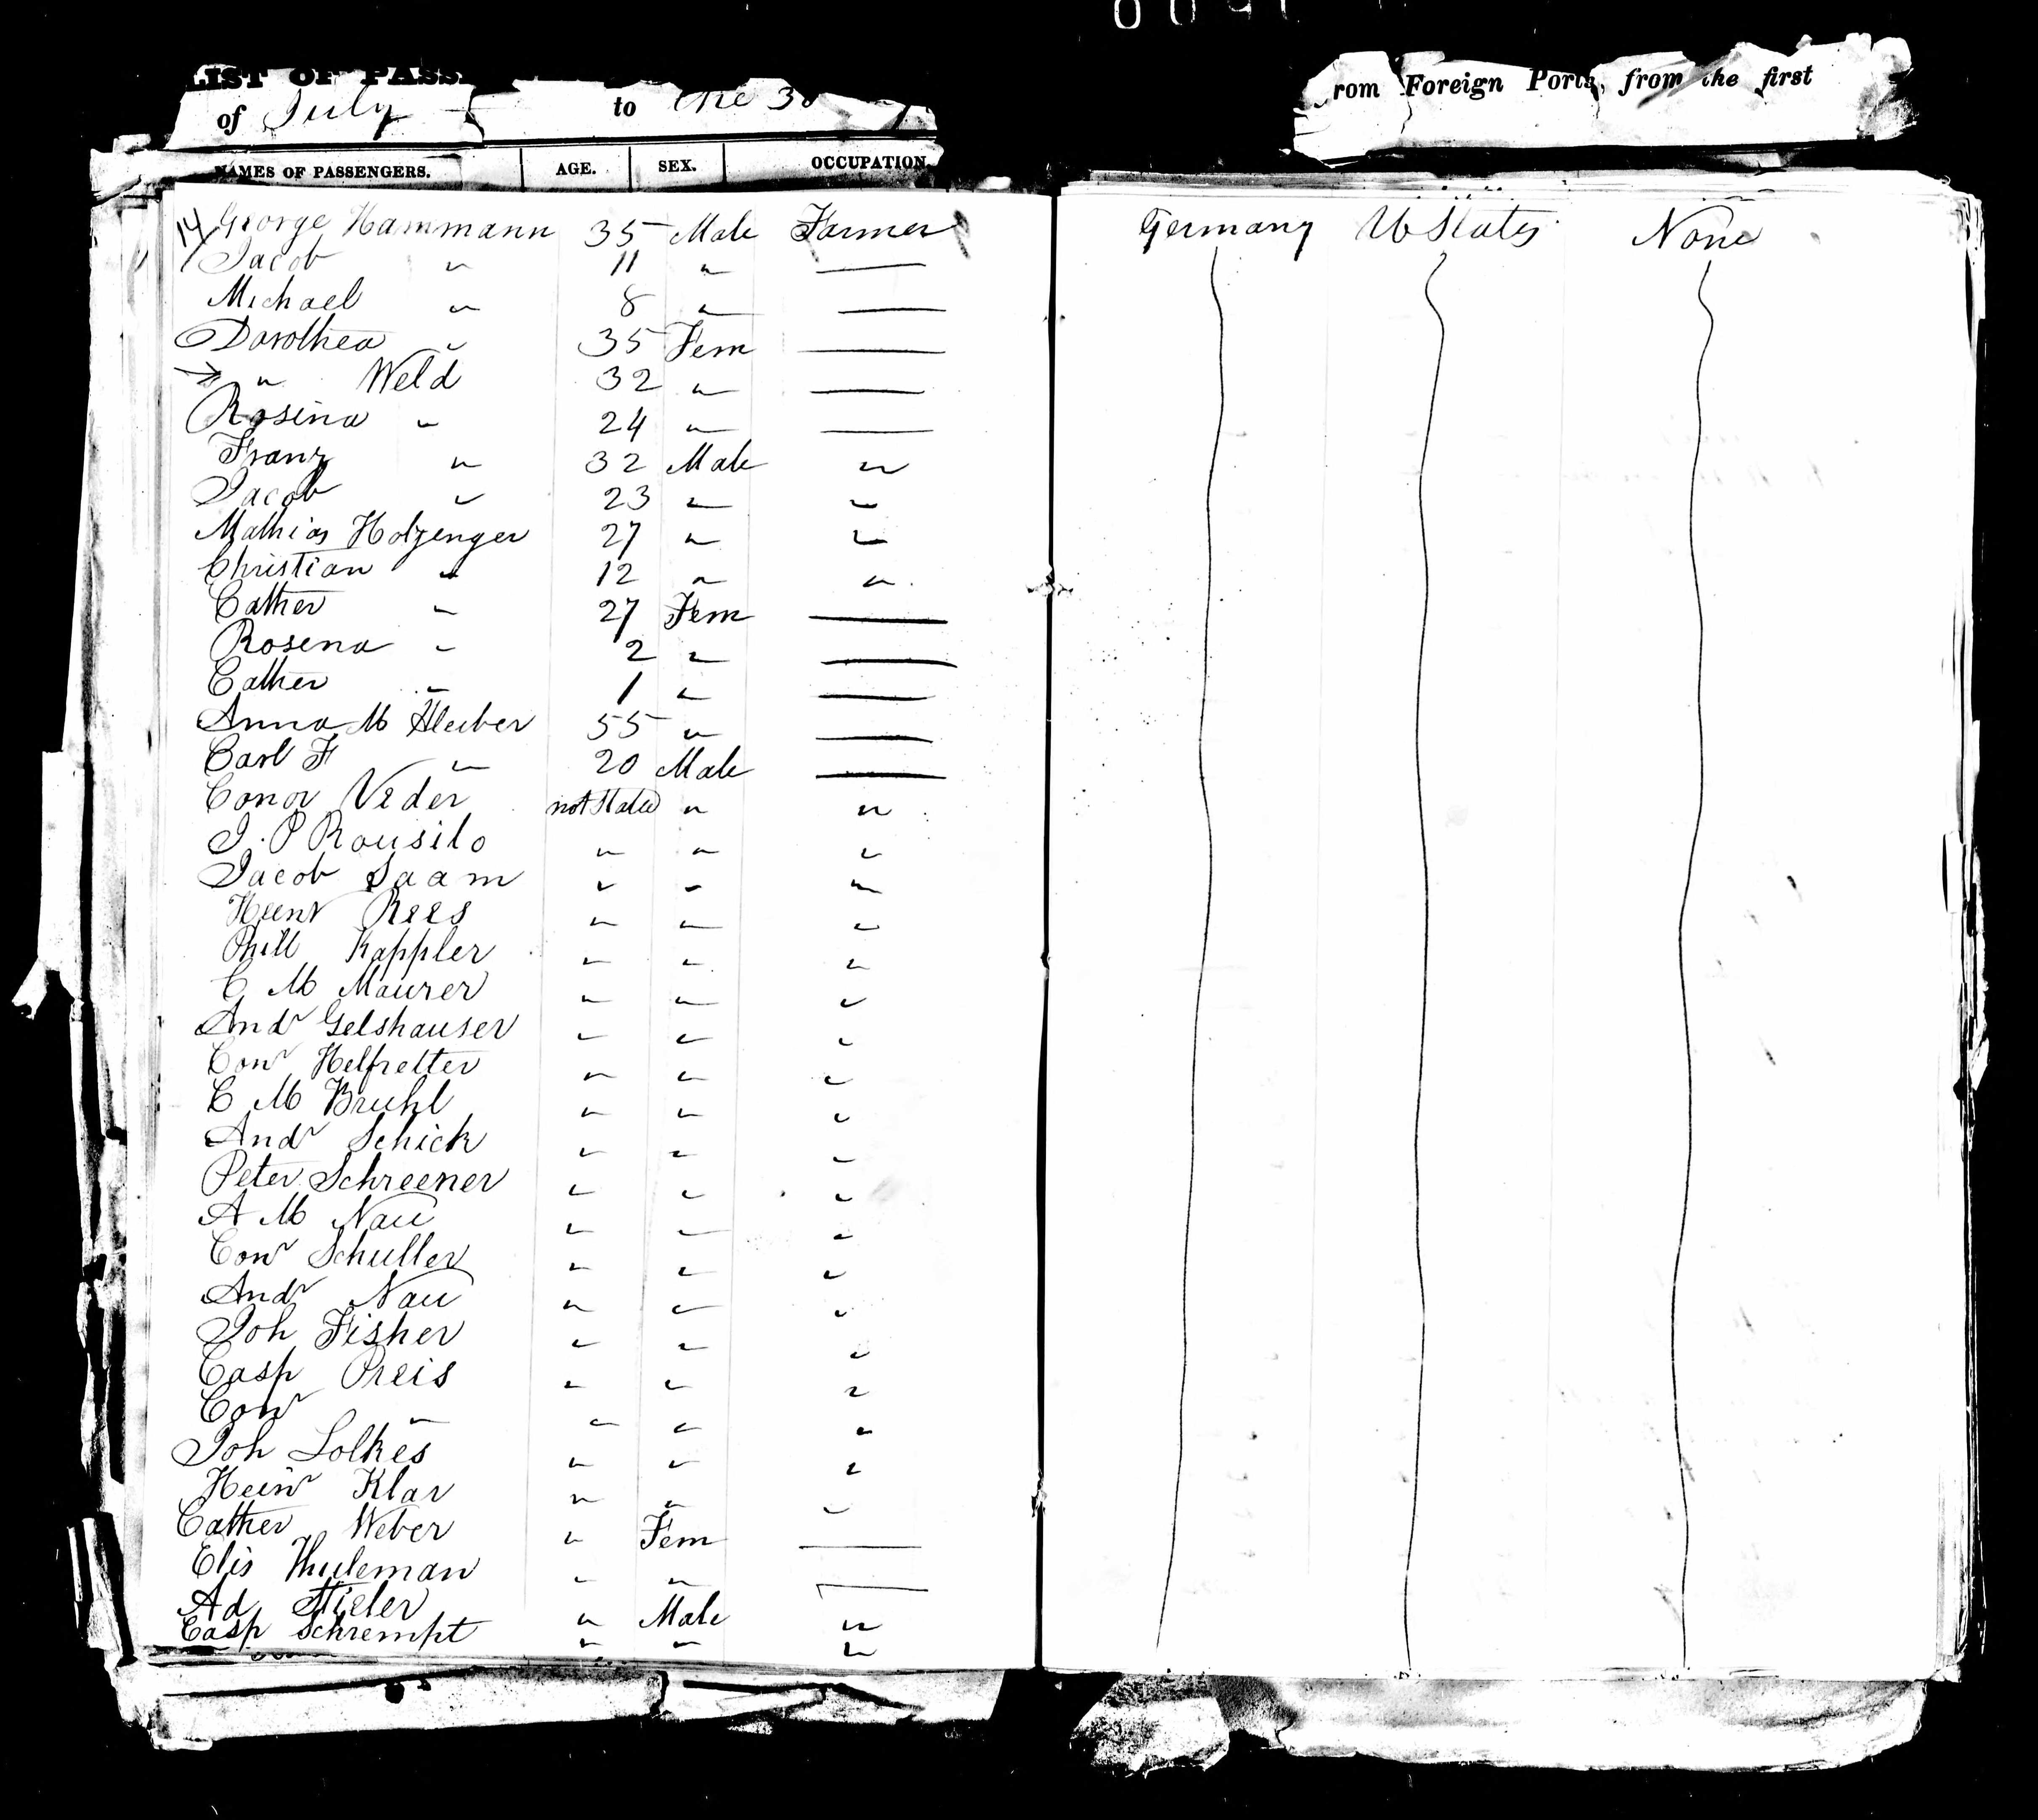 LIST OF PASS rom Foreign Ports, from the first
of July to the 30
NAMES OF PASSENGERS. AGE. SEX. OCCUPATION.
14 George Hammann 35 Male Farmer Germany U States None
Jacob " 11 " —
Michael " 8 " —
Dorothea " 35 Fem —
" Weld 32 " —
Rosina " 24 " —
Franz " 32 Male "
Jacob " 23 " "
Mathias Holzenger 27 " "
Christian " 12 " "
Cather " 27 Fem —
Rosena " 2 " —
Cather " 1 " —
Anna M 55 " —
Carl F " 20 Male —
Conor Veder not Stated " "
J. P Rousilo " " "
Jacob Saam " " "
Heinr Rees " " "
Phill Kappler " " "
C M Maurer " " "
Andr Gelshauser " " "
Conr Helfretter " " "
C M Bruhl " " "
Andr Schick " " "
Peter Schreener " " "
A M Nau " " "
Conr Schuller " " "
Andr Nau " " "
Joh Fisher " " "
Casp Preis " " "
Conr " " " "
Joh Lolkes " " "
Heinr Klar " " "
Cather Weber " Fem —
Elis " " —
Ad Stieler " Male "
Casp Schrempt " " "